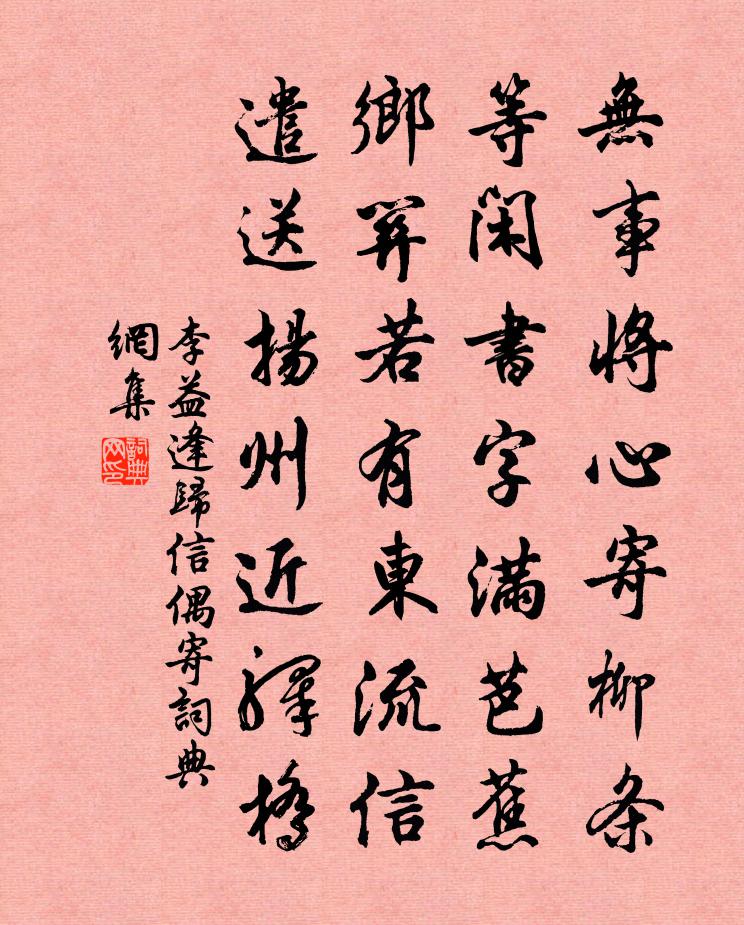 無事將心寄柳条
等閑書字滿芭蕉
鄉関若有東流信
遣送揚州近驛橋
李益逢歸信偶寄詞典
網集
詞典
网印